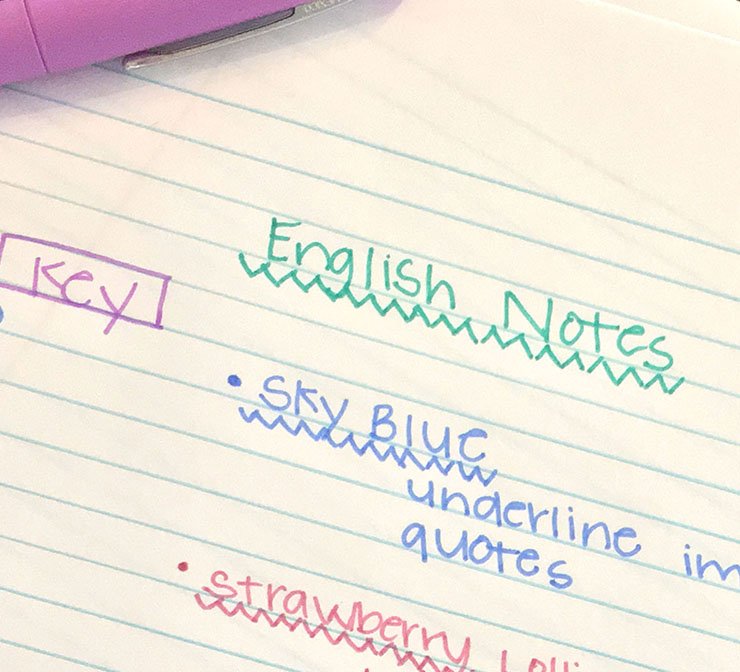 English Notes
Key
• Sky Blue
underline im
quotes
• Strawberry Lolli